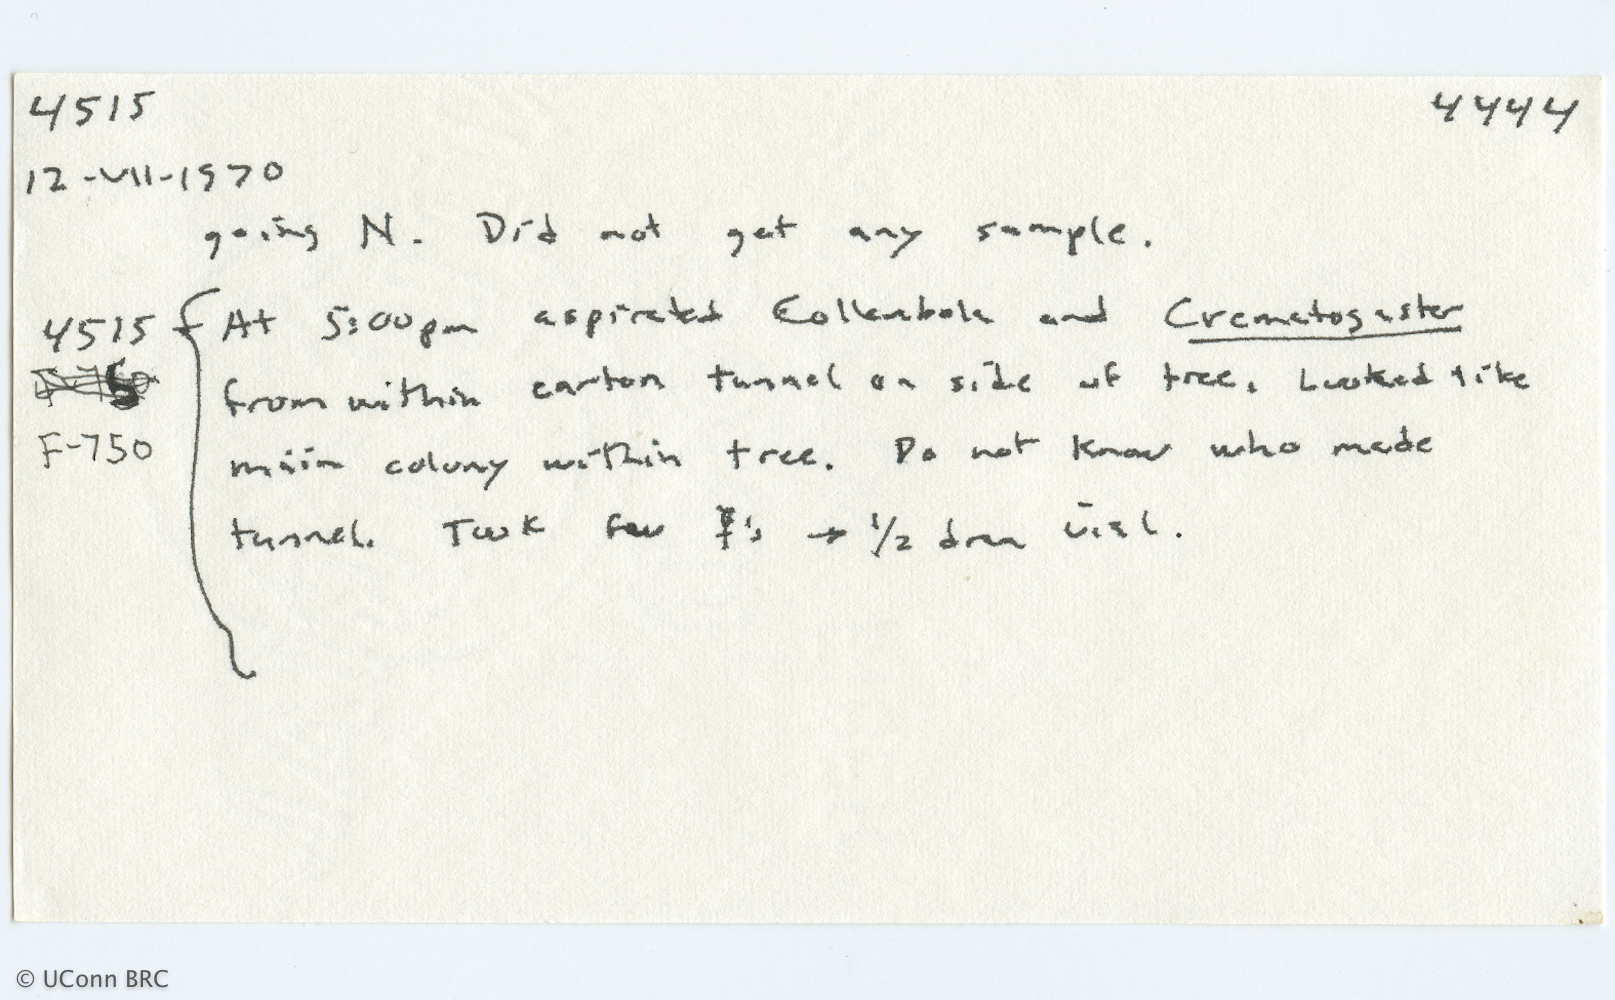 4515 4444
12-VII-1970
going N. Did not get any sample.
4515 At 5:00pm aspirated Collembola and Crematogaster
from within carton tunnel on side of tree. Looked like
F-750 main colony within tree. Do not know who made
tunnel. Took few → 1/2 dram vial.
© UConn BRC